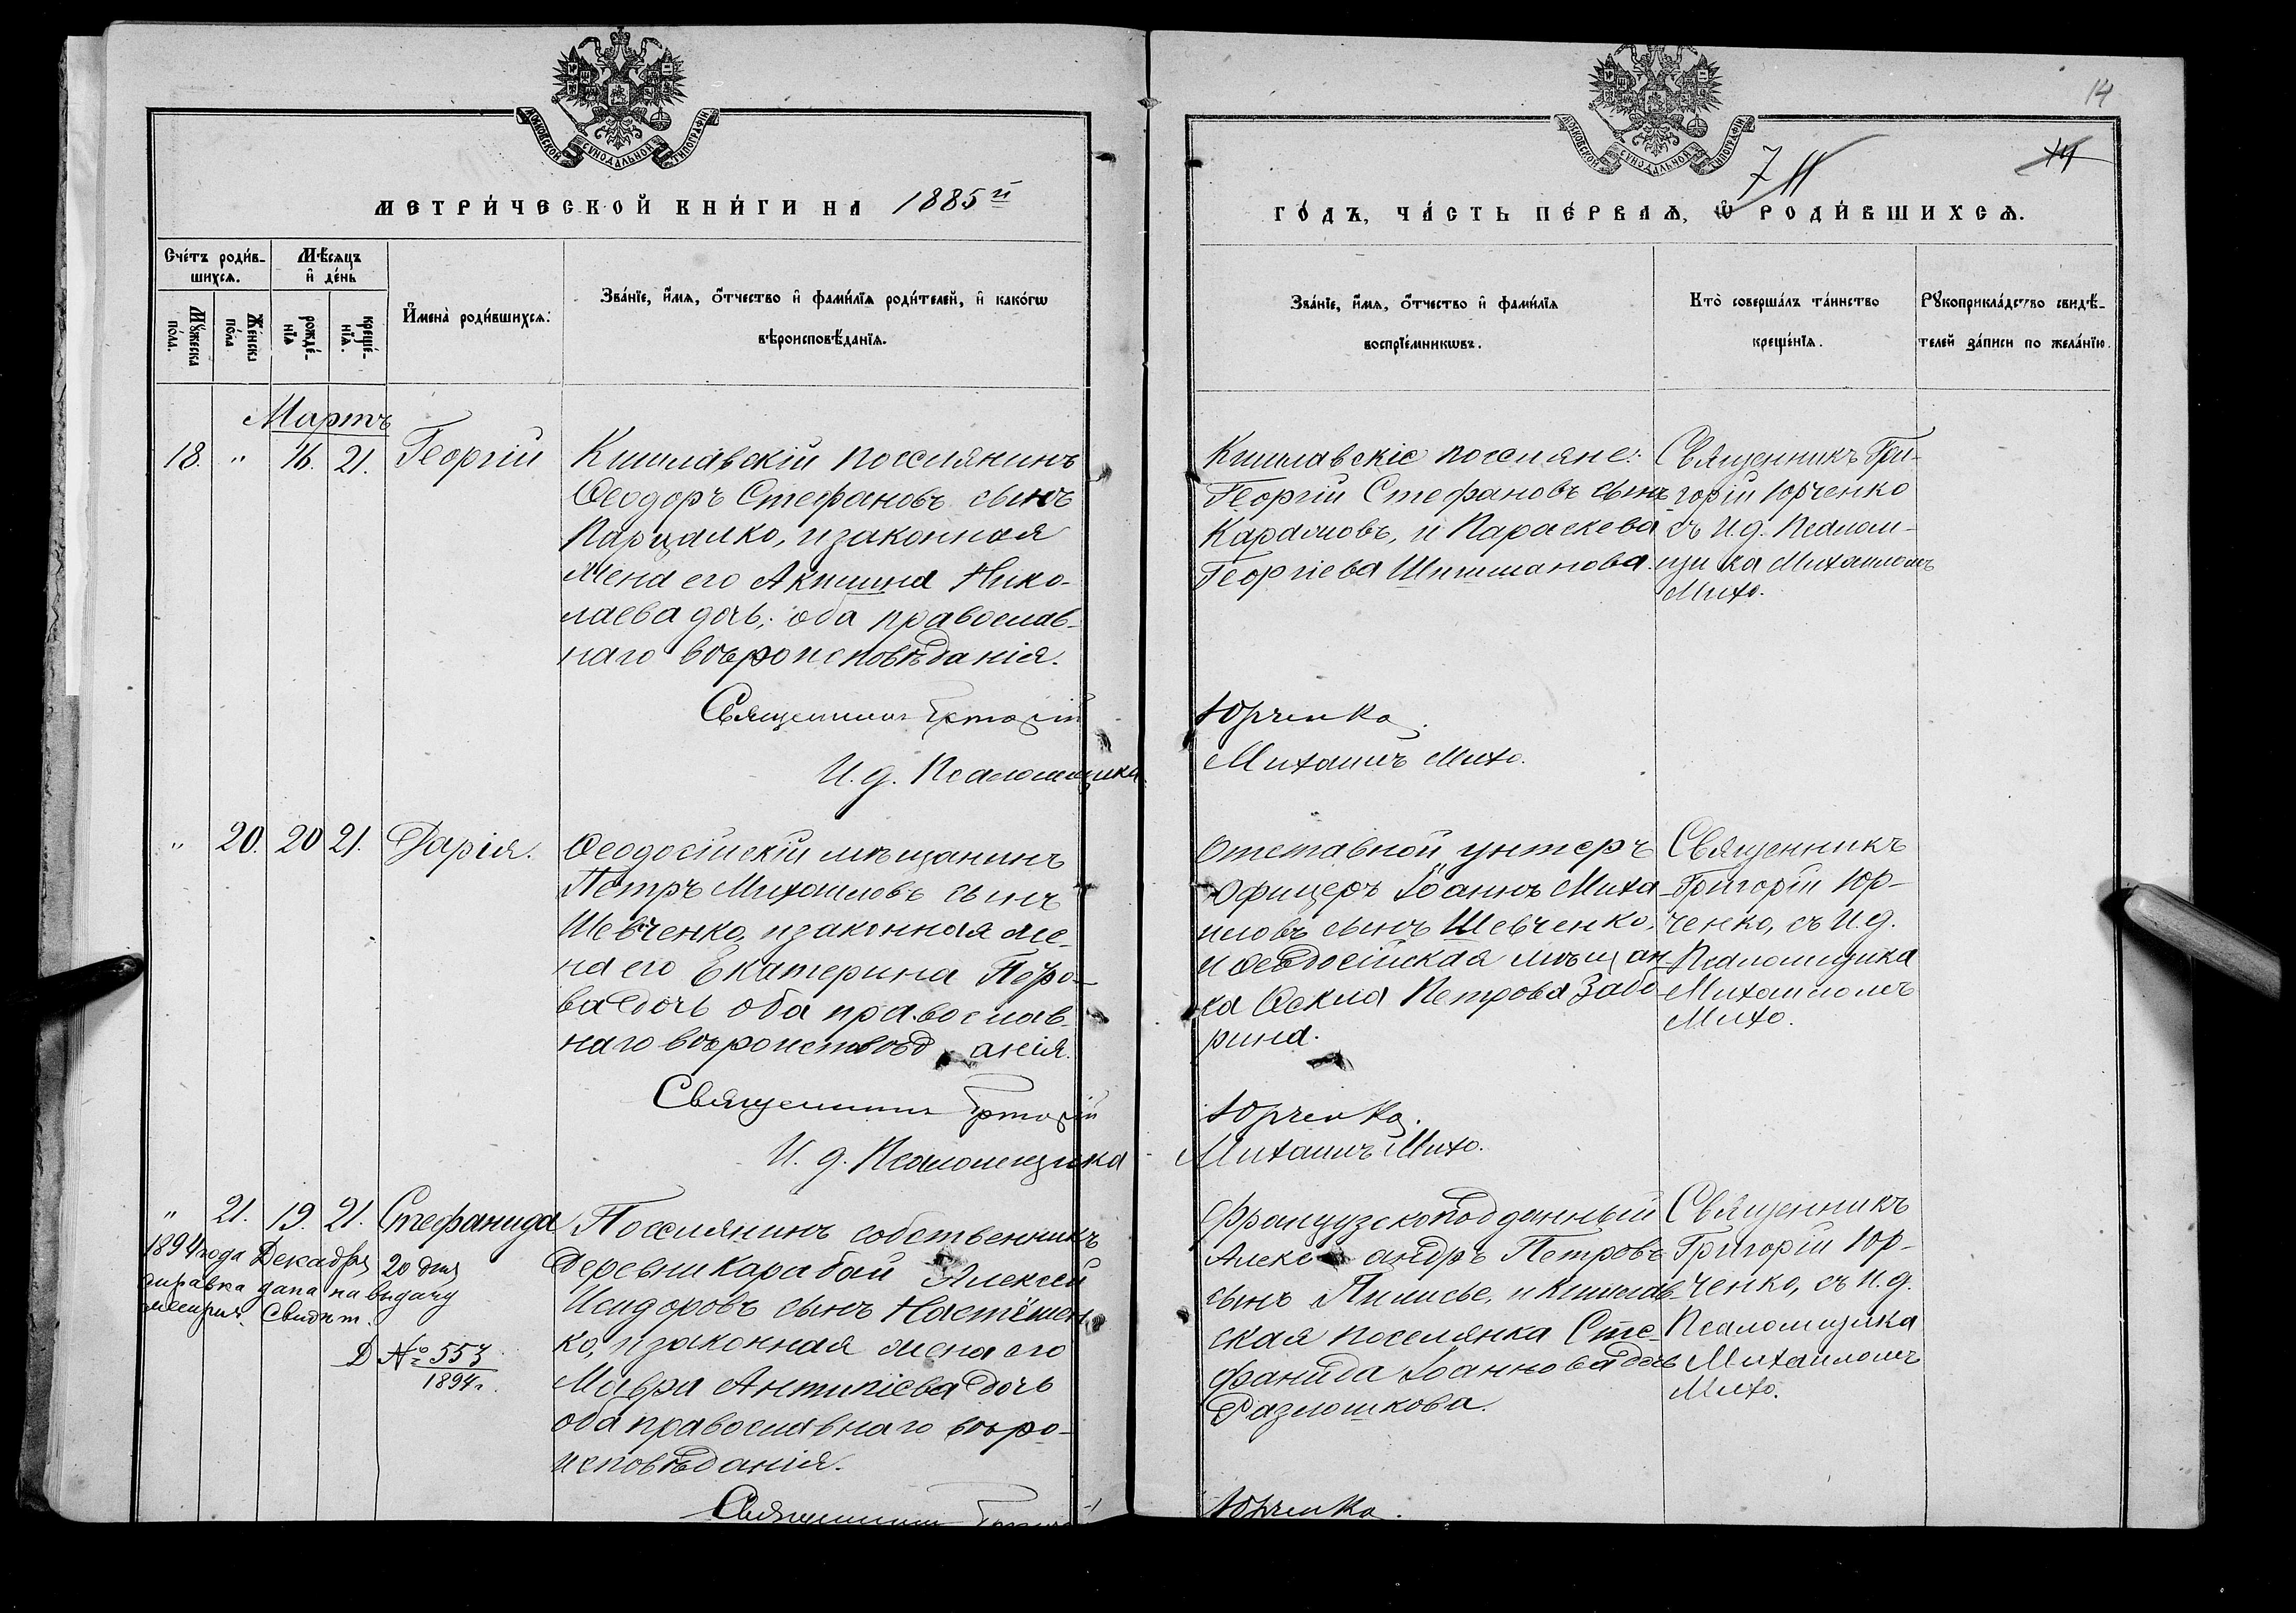 МОСКОВСКОЙ СѴНОДАЛЬНОЙ ТИПОГРАФІИ
МЕТРИ́ЧЕСКОЙ КНИ́ГИ НА 1885й
Сче́тъ роди́в-
шихсѧ.
Мѣ́сѧцъ
и҆ де́нь
Мꙋ́жеска по́ла.
Же́нска по́ла
рожде́-нїѧ
креще́-нїѧ.
И҆мена̀ роди́вшихсѧ.
Зва́нїе, и҆́мѧ, ѻ҆́тчество и҆ фами́лїѧ роди́телей, и҆ како́гѡ
вѣроисповѣ́данїѧ.
Мартъ
18. " 16. 21. Георгій
Кишлавскій поселянинъ
Ѳеодоръ Стефановъ сынъ
Парцалко, и законная
жена его Акилина Нико-
лаева дочь; оба православ-
наго вѣроисповѣданія.
Священникъ Григорій
И. д. Псаломщика
" 20. 20 21. Дарія.
Ѳеодосійскій мѣщанинъ
Петръ Михаиловъ сынъ
Шевченко, и законная же-
на его Екатерина Петро-
ва дочь оба православ-
наго вѣроисповѣд анія.
Священникъ Григорій
И. д. Псаломщика
" 21. 19. 21. Стефанида
1894 года Декабря 20 дня
справка дана на выдачу
метрич. Свидѣт.
Д № 553
1894 г.
Поселянинъ собственникъ
деревни Карабай Алексей
Исидоровъ сынъ Настёшен
ко, и законная жена его
Мавра Антипіева дочь
оба православнаго вѣро-
исповѣданія.
Священникъ
14
14
711
МОСКОВСКОЙ СѴНОДАЛЬНОЙ ТИПОГРАФІИ
ГО́ДЪ, ЧА́СТЬ ПЕ́РВАѦ, Ѽ РОДИ́ВШИХСѦ.
Зва́нїе, и҆́мѧ, ѻ҆́тчество и҆ фами́лїѧ
воспрїе́мникѡвъ.
Кто̀ соверша́лъ та́инство
креще́нїѧ.
Рꙋкоприкла́дство свидѣ́-
телей за́писи по жела́нїю.
Кишлавскіе поселяне:
Георгій Стефановъ сынъ
Карамовъ, и Параскева
Георгіева Шишманова.
Священникъ Гри-
горій Юрченко
съ И. д. Псалом-
щика Михаиломъ
Михо.
Юрченко.
Михаилъ Михо.
Отставной унтеръ
Офицеръ Іоаннъ Миха
иловъ сынъ Шевченко,
и Ѳеодосійская мѣщан
ка Ѳекла Петрова Забо
рина.
Священникъ
Григорій Юр-
ченко, съ И. д.
Псаломщика
Михаиломъ
Михо.
Юрченко.
Михаилъ Михо.
Французскоподданный
Алекс андръ Петровъ
сынъ и Кишлав-
ская поселянка Сте-
фанида Іоаннова дочь
Разлошкова.
Священникъ
Григорій Юр-
ченко, съ И. д.
Псаломщика
Михаиломъ
Михо.
Юрченко.